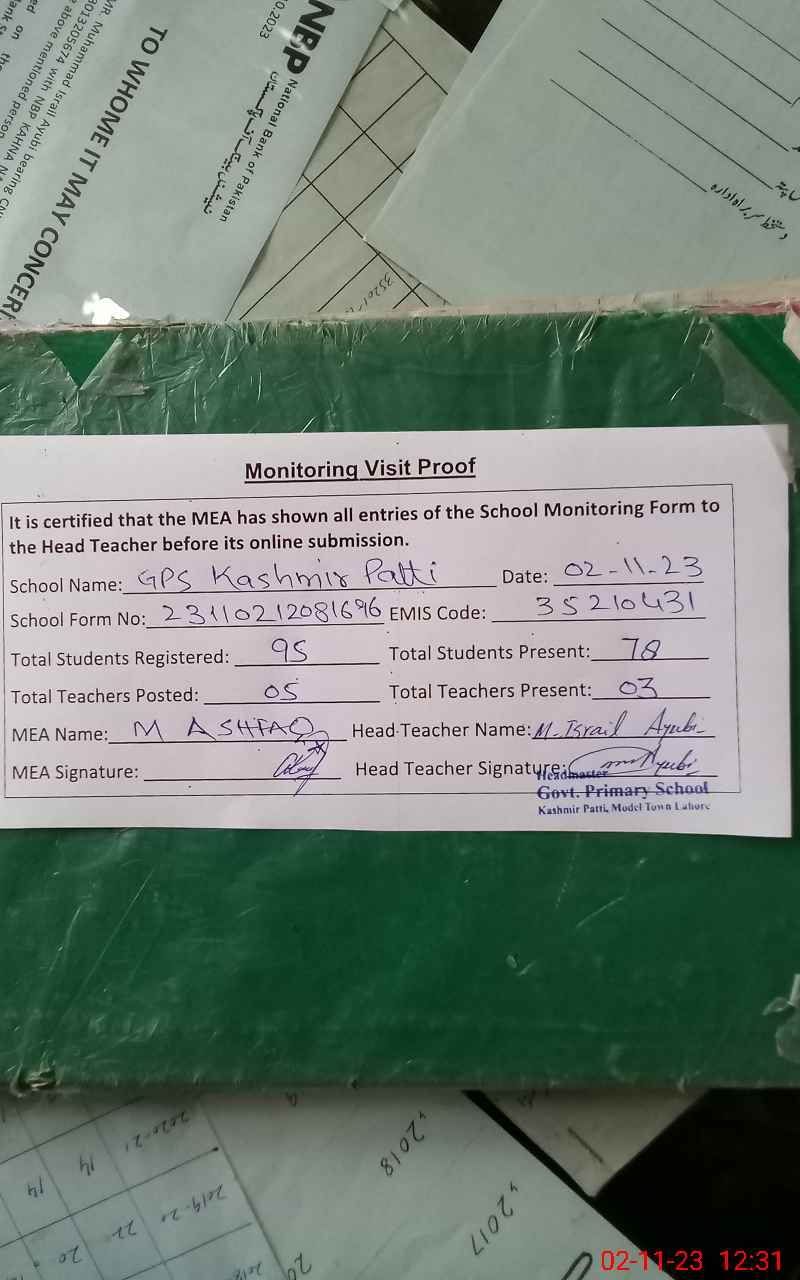 10.2023
NBP
National Bank of Pakistan
نیشنل بینک آف پاکستان
TO WHOME IT MAY CONCER
MR. Muhammad Israil Ayubi bearing
3013205674 with NBP KAHNA
above mentioned person
on
دستخط سربراہ ادارہ
35201-
Monitoring Visit Proof
It is certified that the MEA has shown all entries of the School Monitoring Form to
the Head Teacher before its online submission.
School Name: GPS Kashmir Patti Date: 02-11-23
School Form No: 23110212081696 EMIS Code: 35210431
Total Students Registered: 95 Total Students Present: 78
Total Teachers Posted: 05 Total Teachers Present: 03
MEA Name: M ASHFAQ Head Teacher Name: M. Israil Ayubi
MEA Signature: Head Teacher Signature: Ayubi
Headmaster
Govt. Primary School
Kashmir Patti, Model Town Lahore
2020-21 14 14
2019-20 22 20
2018
2017
02-11-23 12:31